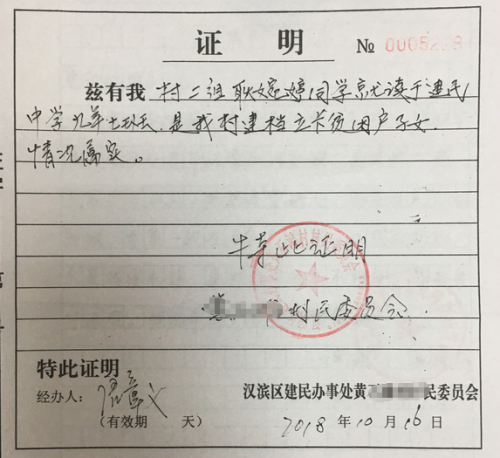 证 明
№ 0005225
兹有我 村二组 耿婉婷同学就读于建民
中学九年七班, 是我村建档立卡贫困户子女
情况属实。
特此证明
村民委员会
特此证明
经办人:
(有效期 天)
汉滨区建民办事处黄 民委员会
2018 年 10 月 16 日